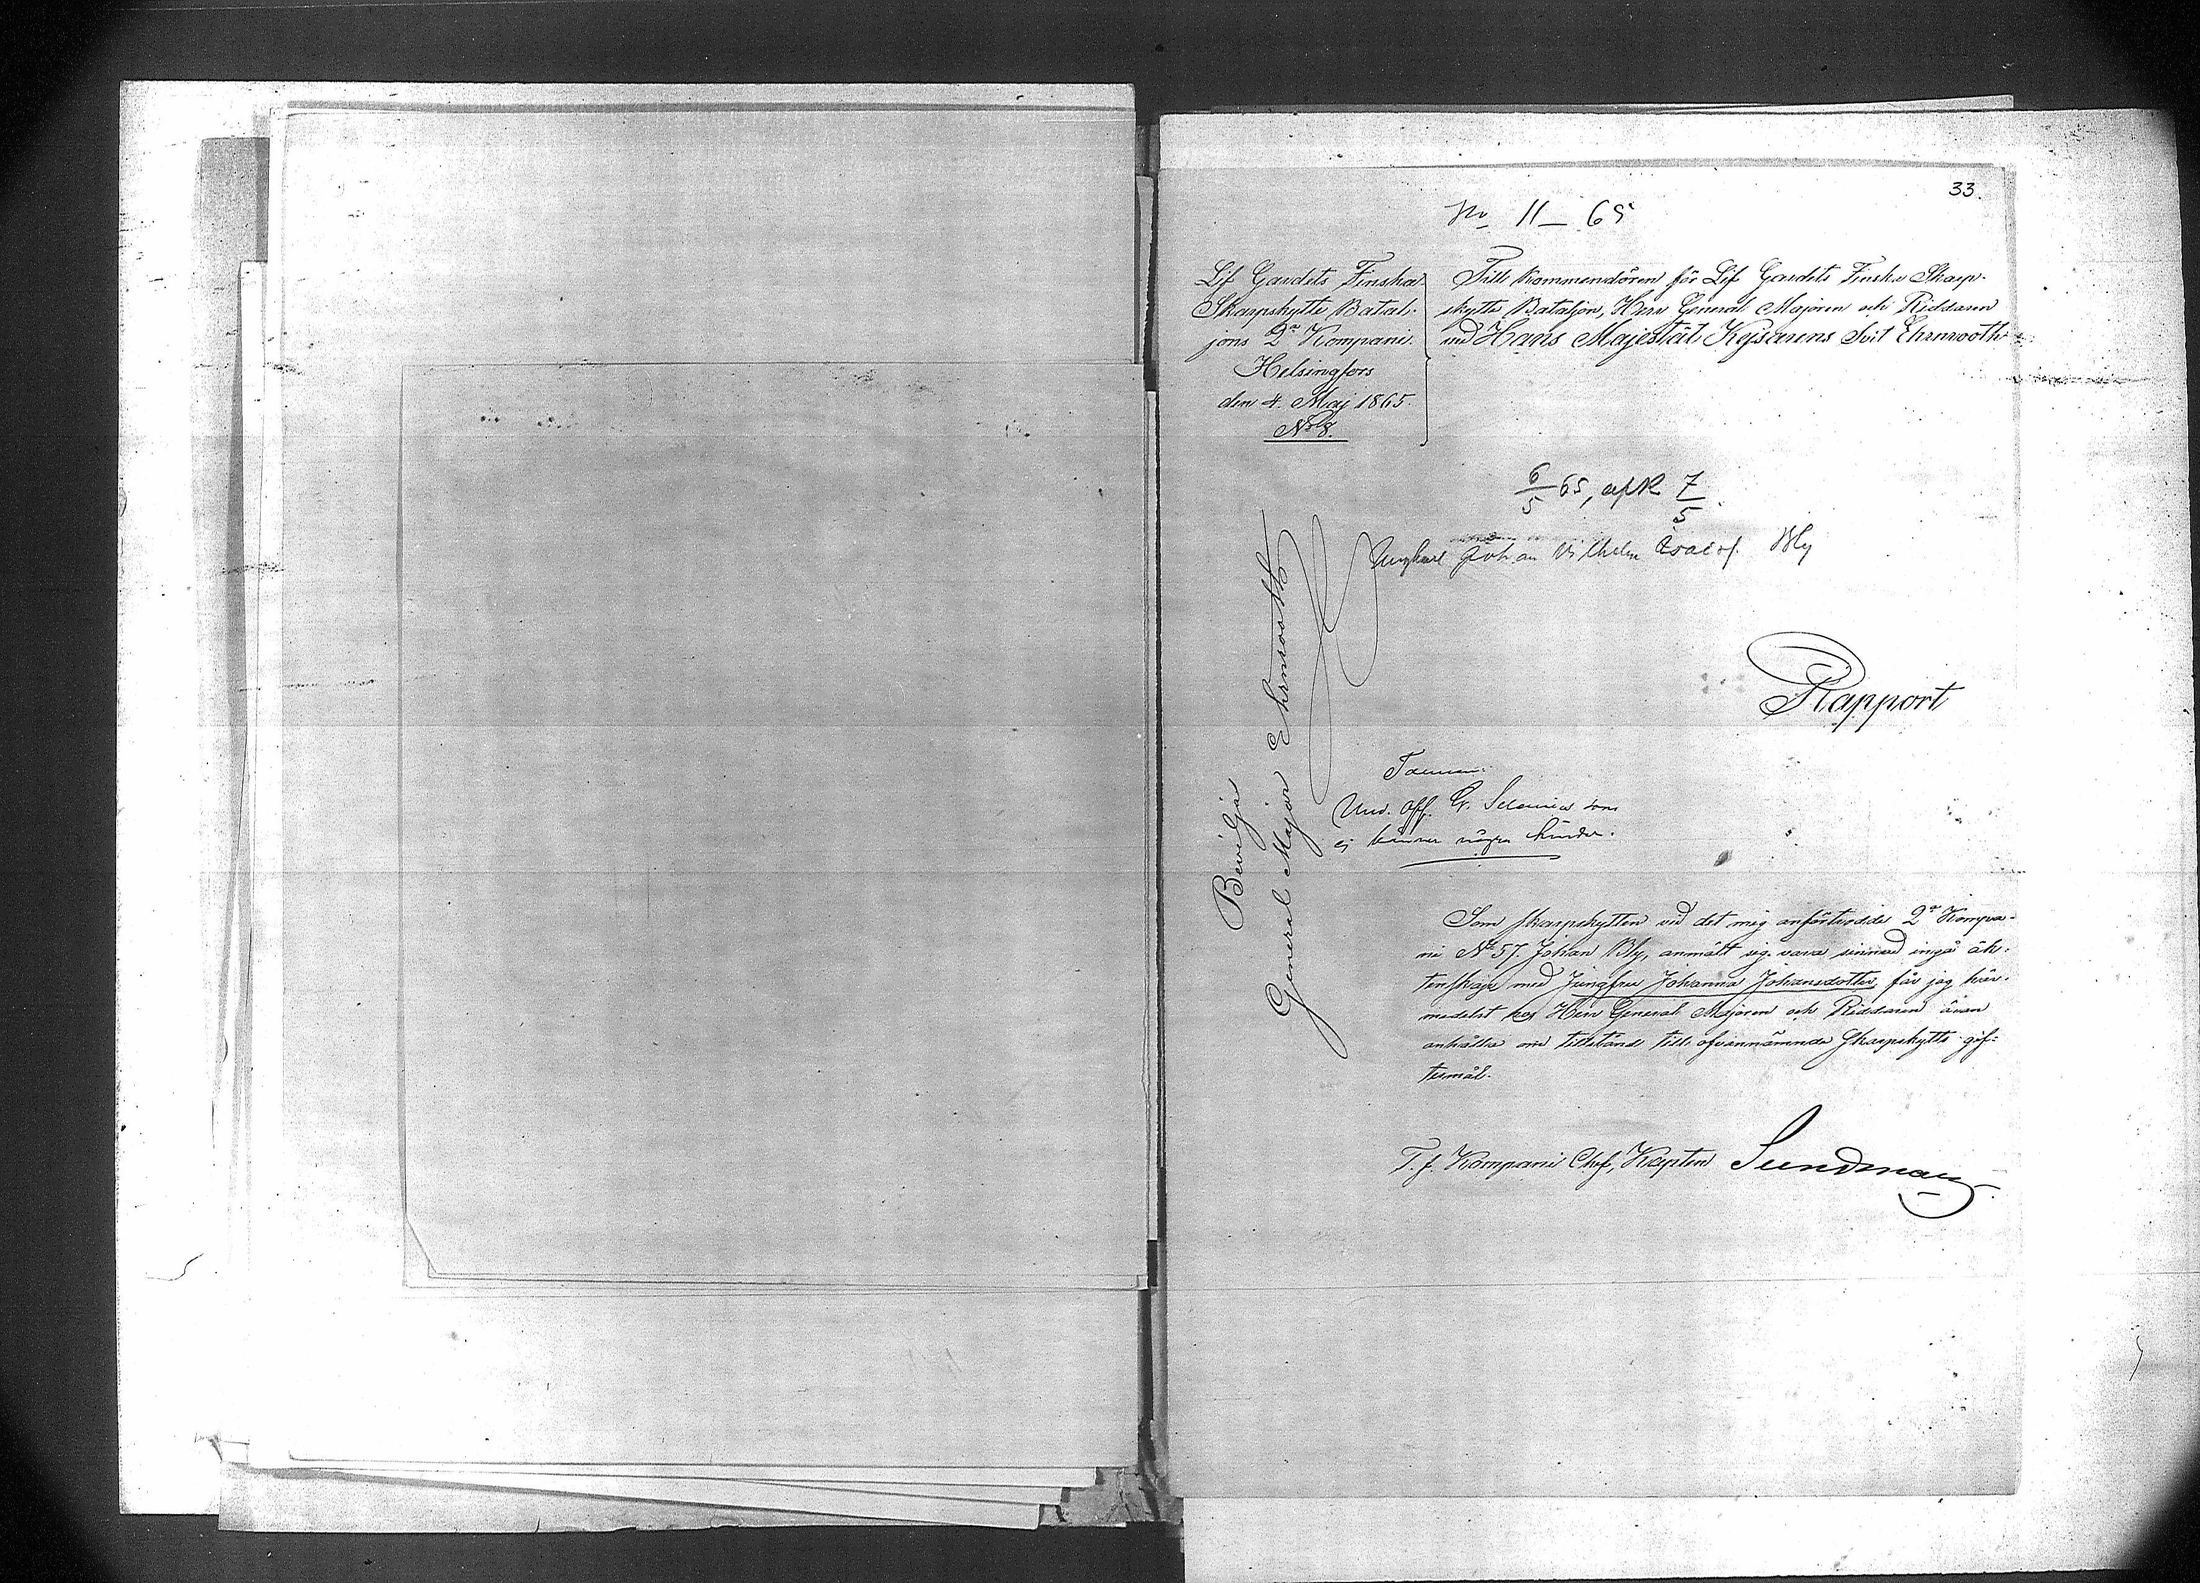 33.
No 11 - 65
Lif Gardets Finska
Skarpskytte Batal-
jons 2a Kompani.
Helsingfors
den 4. Maj 1865.
No 8.
Till Kommendören för Lif Gardets Finska Skarp-
skytte Bataljon, Herr General Majoren och Riddaren
Hans Majestät Kejsarens Svit Ehrnrooth
6/5 65, afk 7/5
Johan Vilhelm Bly
Rapport
Beviljas
General Major Ehrnrooth
Und. Off. G. som
ej känner några hinder.
Som skarpskytten vid det mig anförtrodda 2a Kompa-
ni No 57. Johan Bly, anmält sig vara sinnad ingå äk-
tenskap med Jungfru Johanna Johansdotter, får jag här-
medelst hos Herr General Majoren och Riddaren äran
anhålla om tillstånd till ofvannämnda Skarpskytts gif-
termål.
T. f. Kompani Chef, Kapten Sundman